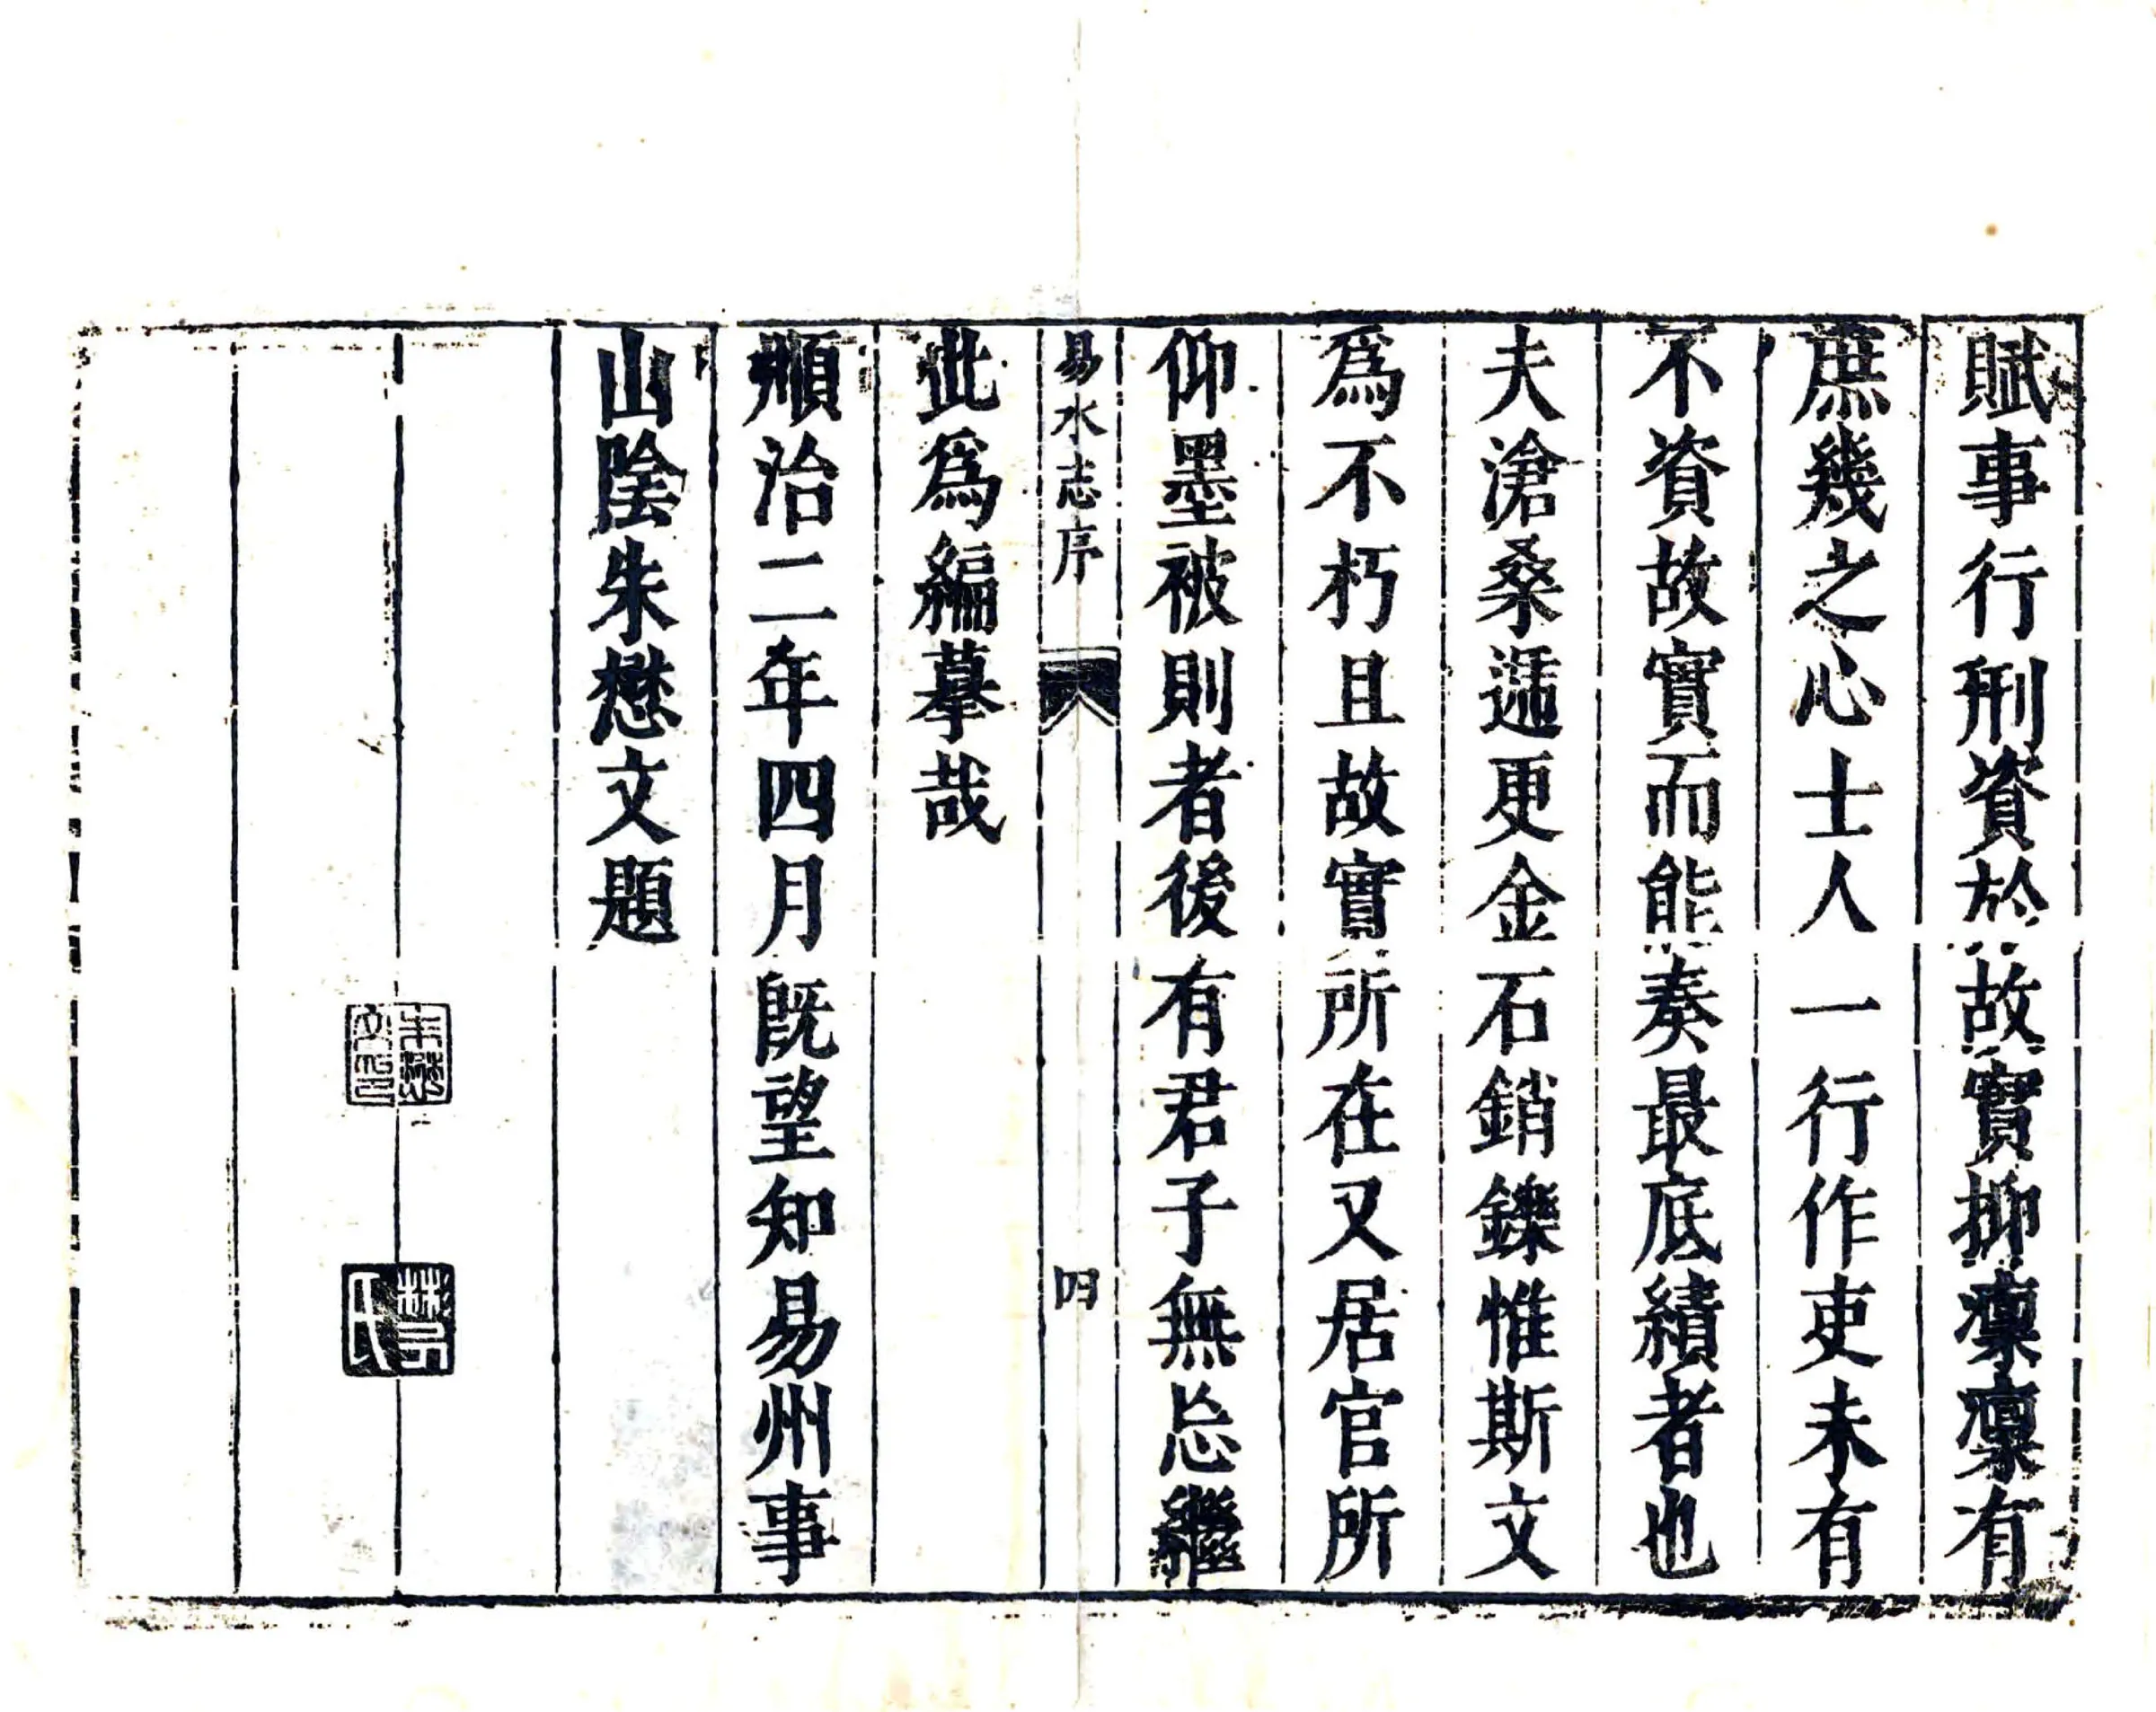 賦事行刑資於故實抑凜凜有
庶幾之心士人一行作吏未有
不資故實而能奏最底績者也
夫滄桑遞更金石銷鑠惟斯文
爲不朽且故實所在又居官所
仰墨被則者後有君子無忘繼
易水志序
四
此爲編摹哉
順治二年四月旣望知易州事
山陰朱懋文題
朱懋文印